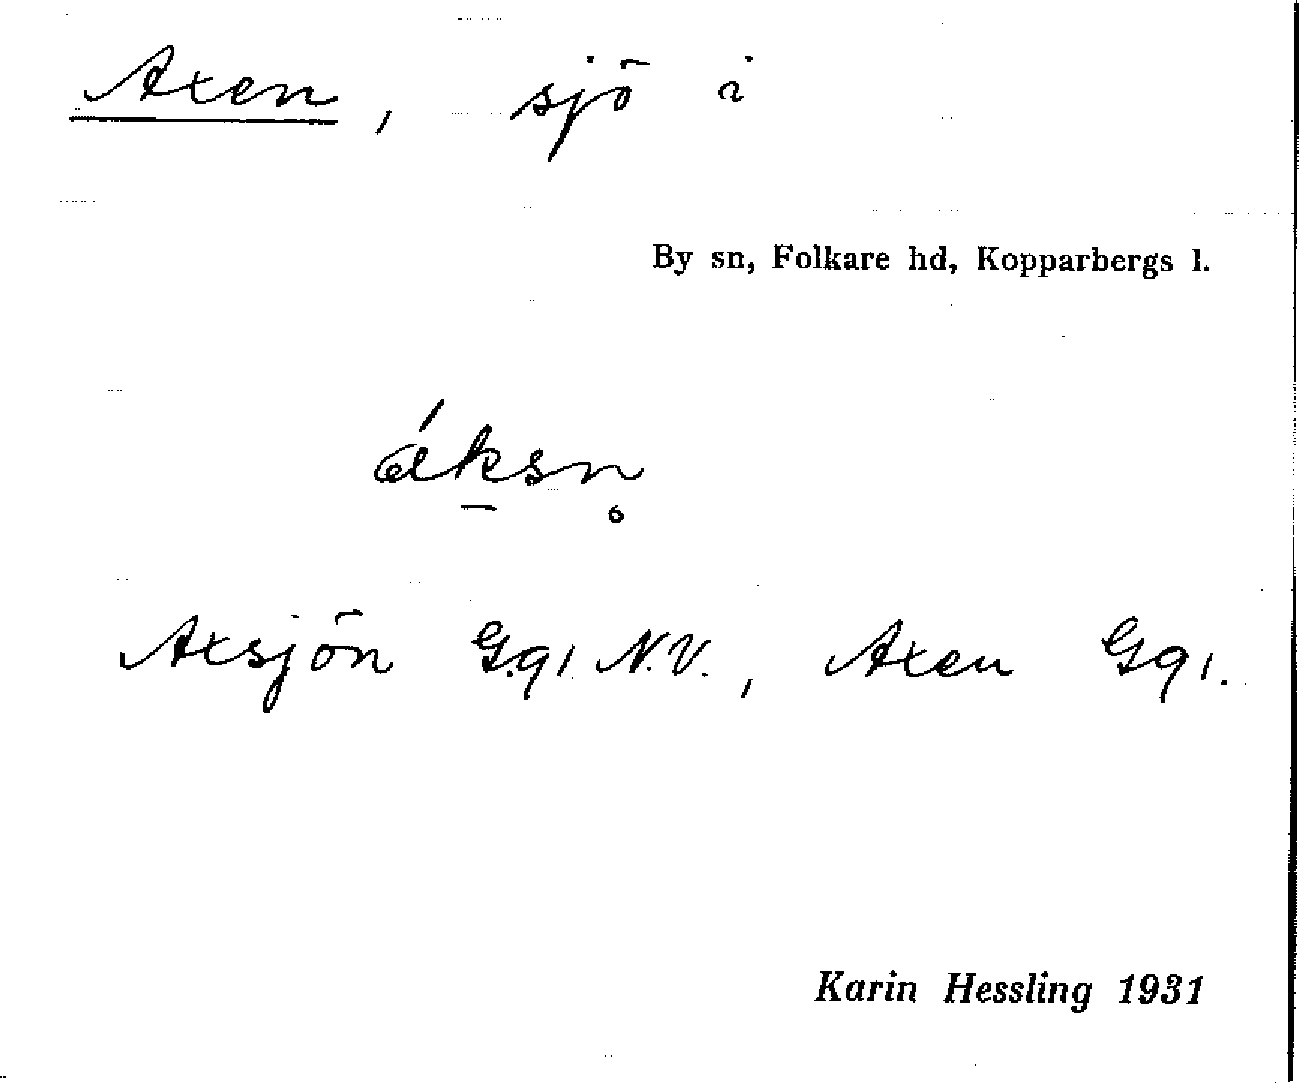 Axen, sjö i
By sn, Folkare hd, Kopparbergs l.
ák̲sn̥
Axsjön G.91 N.V., Axen G91.
Karin Hessling 1931